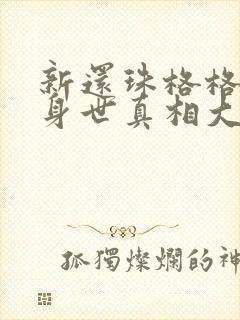 新還珠格格
身世真相大
孤獨燦爛的神